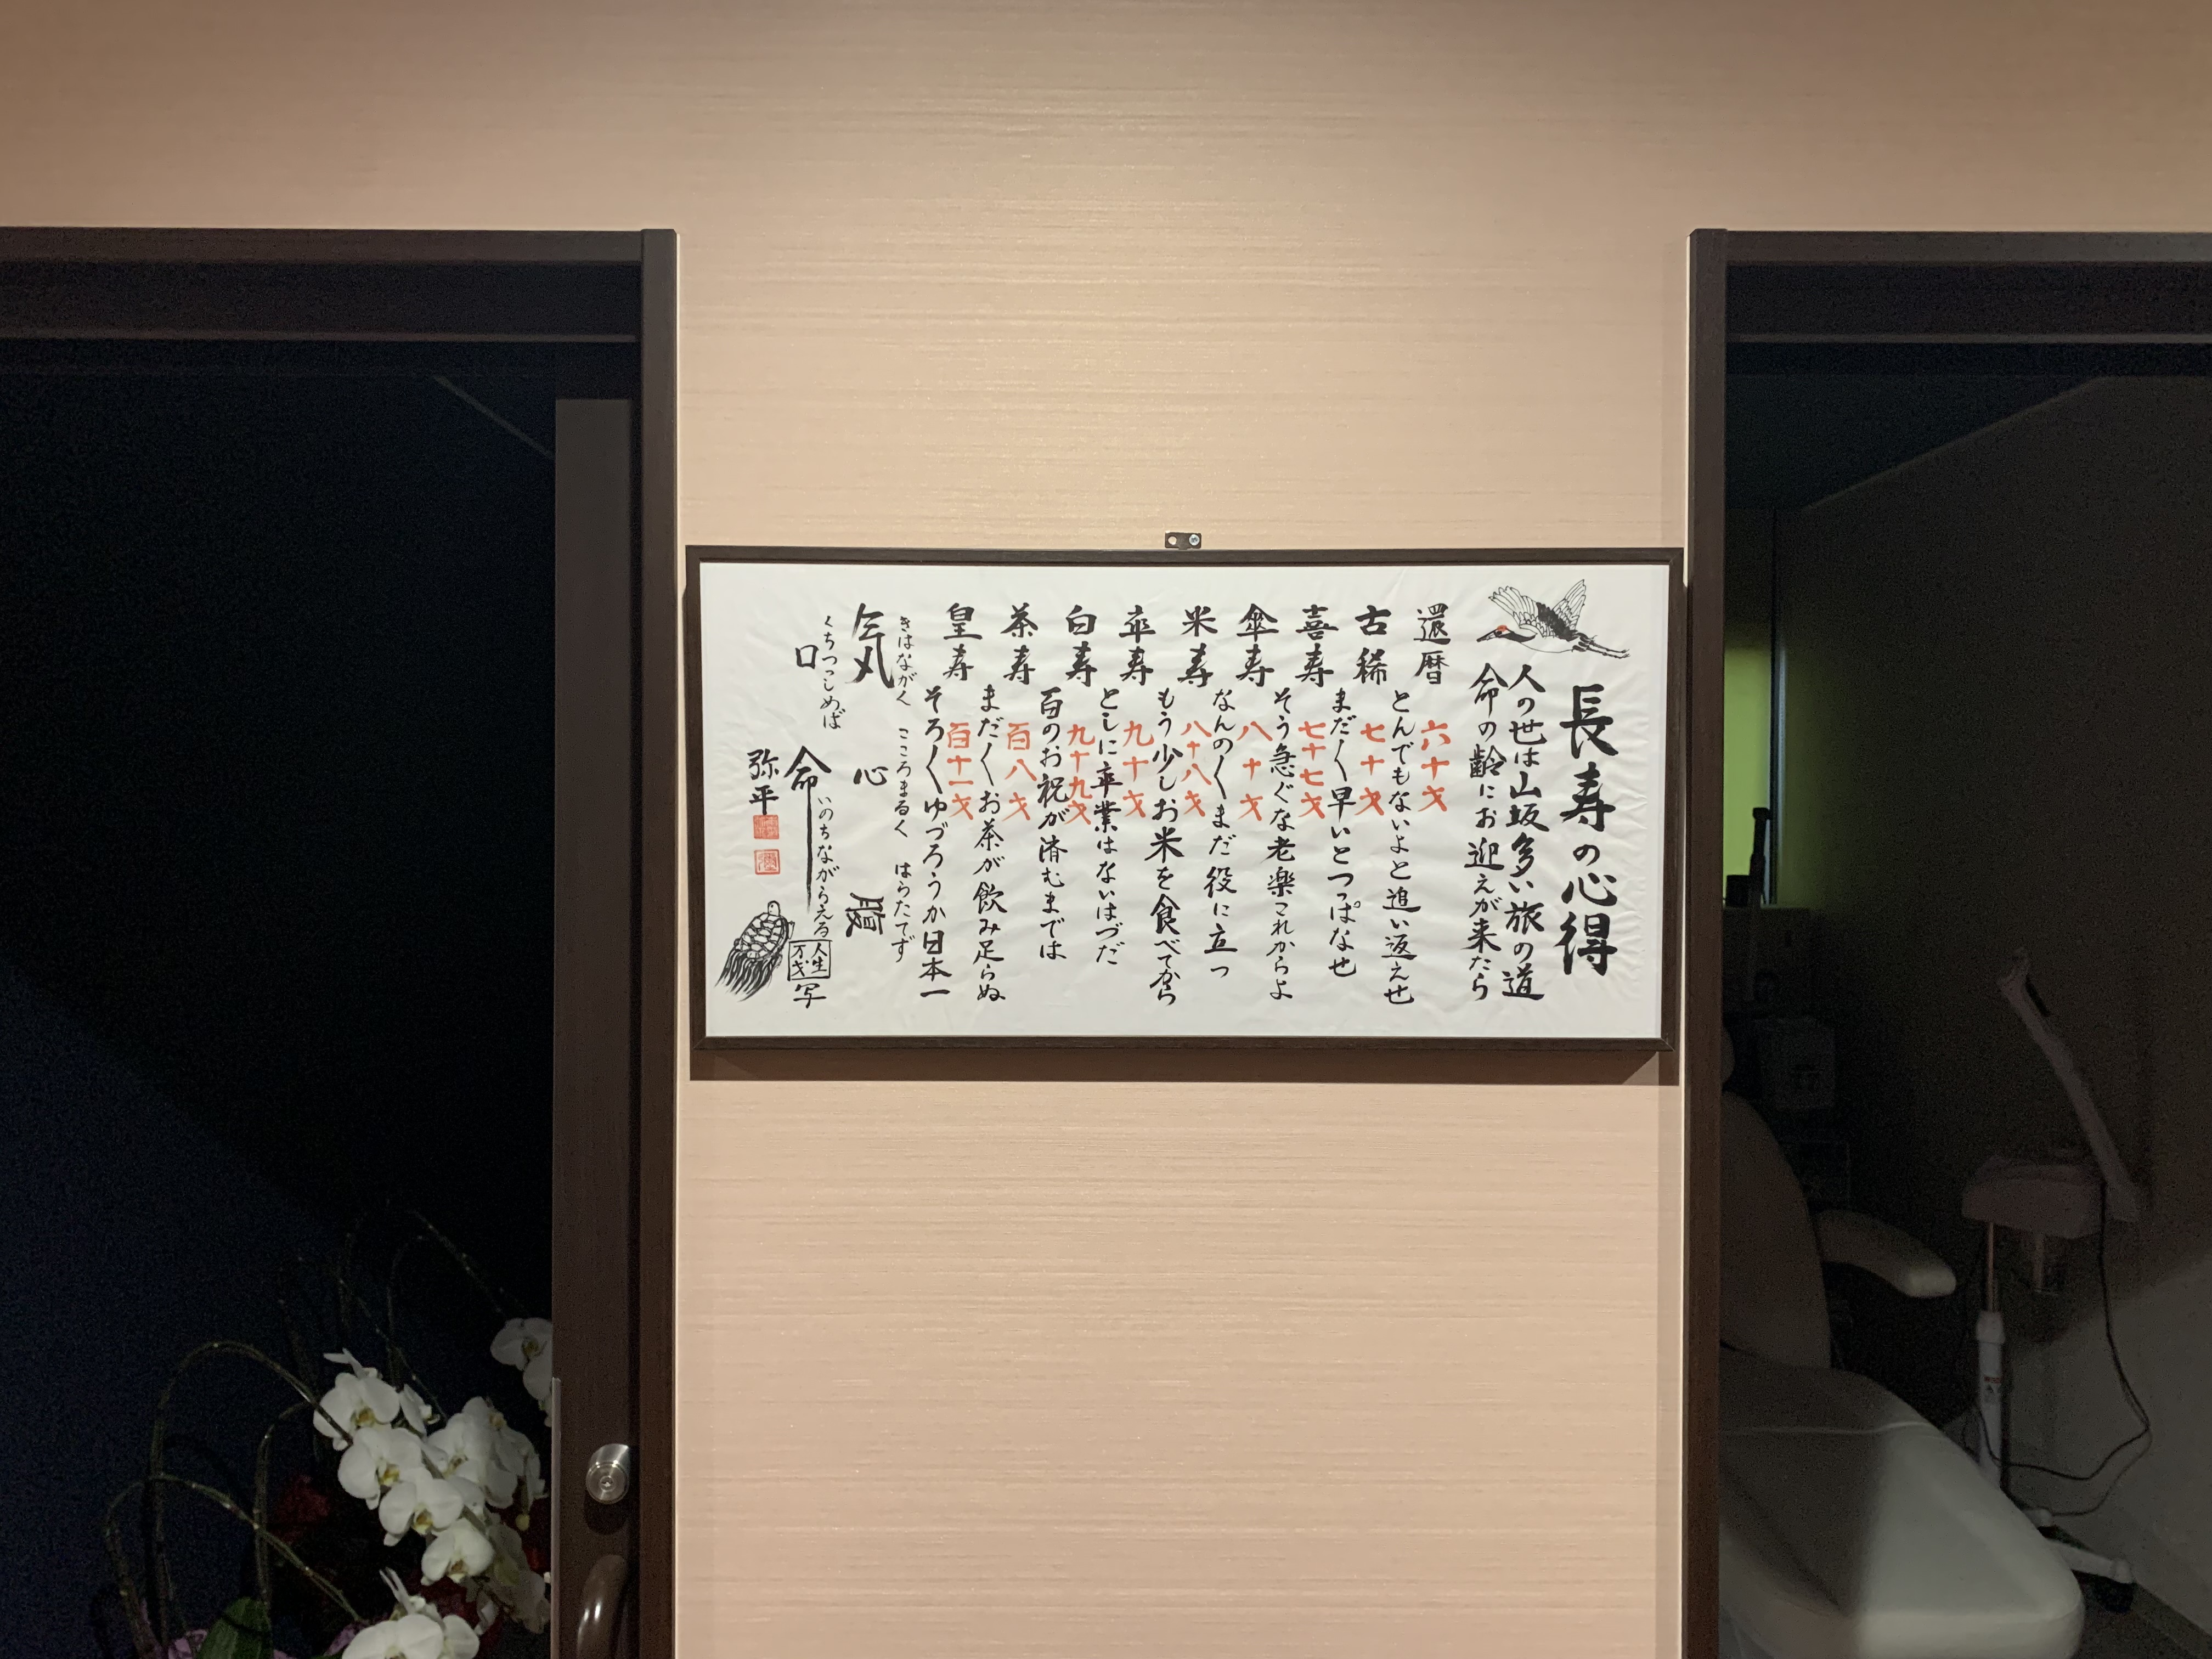 長寿の心得
人の世は山坂多い旅の道
命の齢にお迎えが来たら
還暦
六十才
とんでもないよと追い返えせ
古稀
七十才
まだ〱早いとつっぱなせ
喜寿
七十七才
そう急ぐな老楽これからよ
傘寿
八十才
なんの〱まだ役に立つ
米寿
八十八才
もう少しお米を食べてから
卒寿
九十才
としに卒業はないはづだ
白寿
九十九才
百のお祝が済むまでは
茶寿
百八才
まだ〱お茶が飲み足らぬ
皇寿
百十一才
そろ〱ゆづろうか日本一
きはながく こころまるく はらたてず
気 心 腹
くちつつしめば いのちながらえる
口 命
人生
万才
写
弥平